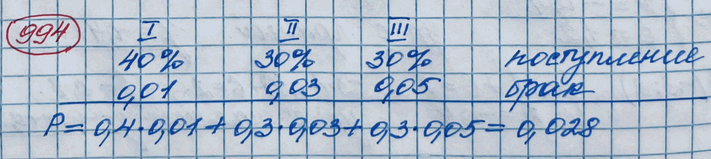 994 I II III
40% 30% 30% поступление
0,01 0,03 0,05 брак
P = 0,4·0,01 + 0,3·0,03 + 0,3·0,05 = 0,028